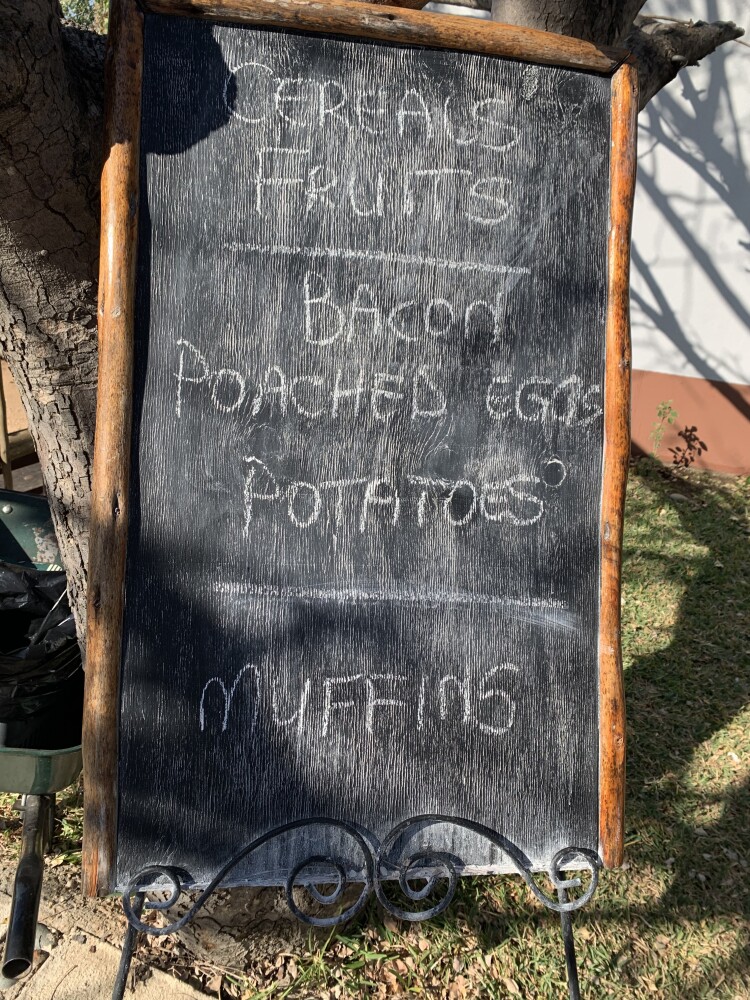 CEREALS
FRUITS
BACON
POACHED EGGS
POTATOES
MUFFINS